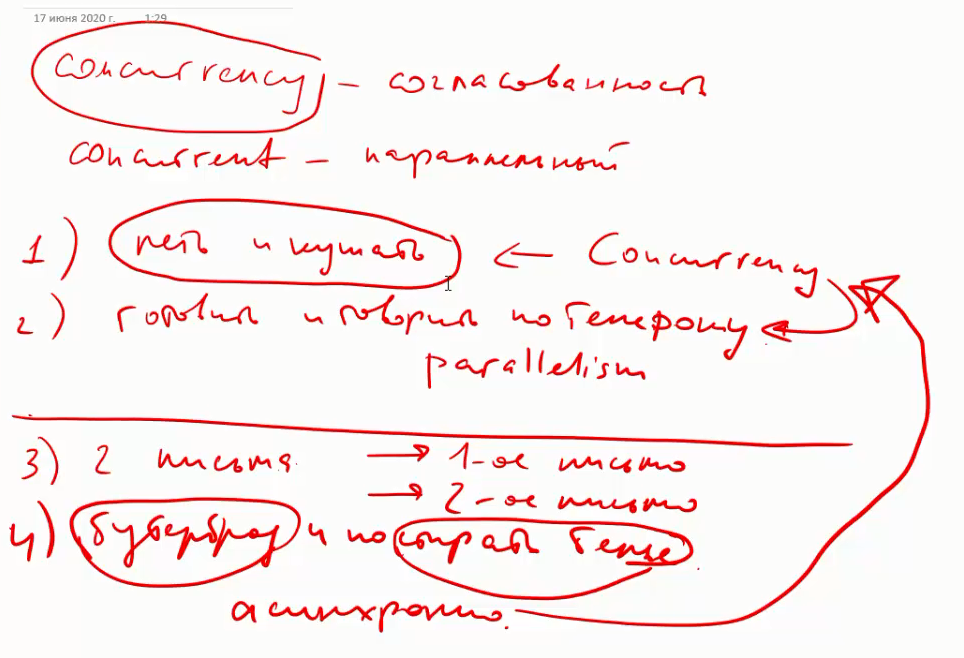 17 июня 2020 г. 1:29
concurrency – согласованность
concurrent – параллельный
1) петь и кушать ← Concurrency
2) готовил и говорил по телефону
parallelism
3) 2 письма → 1-ое письмо
→ 2-ое письмо
4) бутерброд и постирать белье
асинхронно.